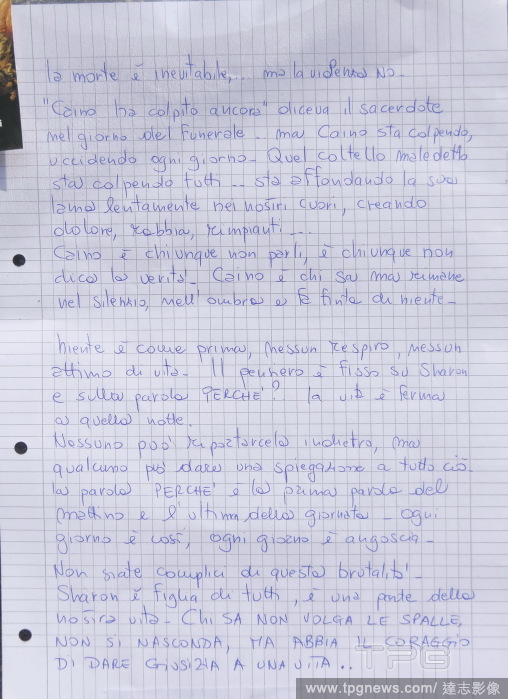 la morte è inevitabile,... ma la violenza NO.
"Caino ha colpito ancora" diceva il sacerdote
nel giorno del Funerale. ma Caino sta colpendo,
uccidendo ogni giorno. Quel coltello maledetto
sta colpendo tutti... sta affondando la sua
lama lentamente nei nostri cuori, creando
dolore, rabbia, rimpianti...
Caino è chiunque non parli, è chiunque non
dica la verità. Caino è chi sa ma rimane
nel silenzio, nell'ombra e fa finta di niente.
niente è come prima, nessun respiro, nessun
attimo di vita. Il pensiero è fisso su Sharon
e sulla parola PERCHE'? la vita è ferma
a quella notte.
Nessuno può riportarcela indietro, ma
qualcuno può dare una spiegazione a tutto ciò.
la parola PERCHE' è la prima parola del
mattino e l'ultima della giornata. ogni
giorno è così, ogni giorno è angoscia.
Non siate complici di questa brutalità.
Sharon è figlia di tutti, è una parte della
nostra vita. Chi SA NON VOLGA LE SPALLE,
NON SI NASCONDA, MA ABBIA IL CORAGGIO
DI DARE GIUSTIZIA A UNA VITA..
TPG
www.tpgnews.com/ 達志影像